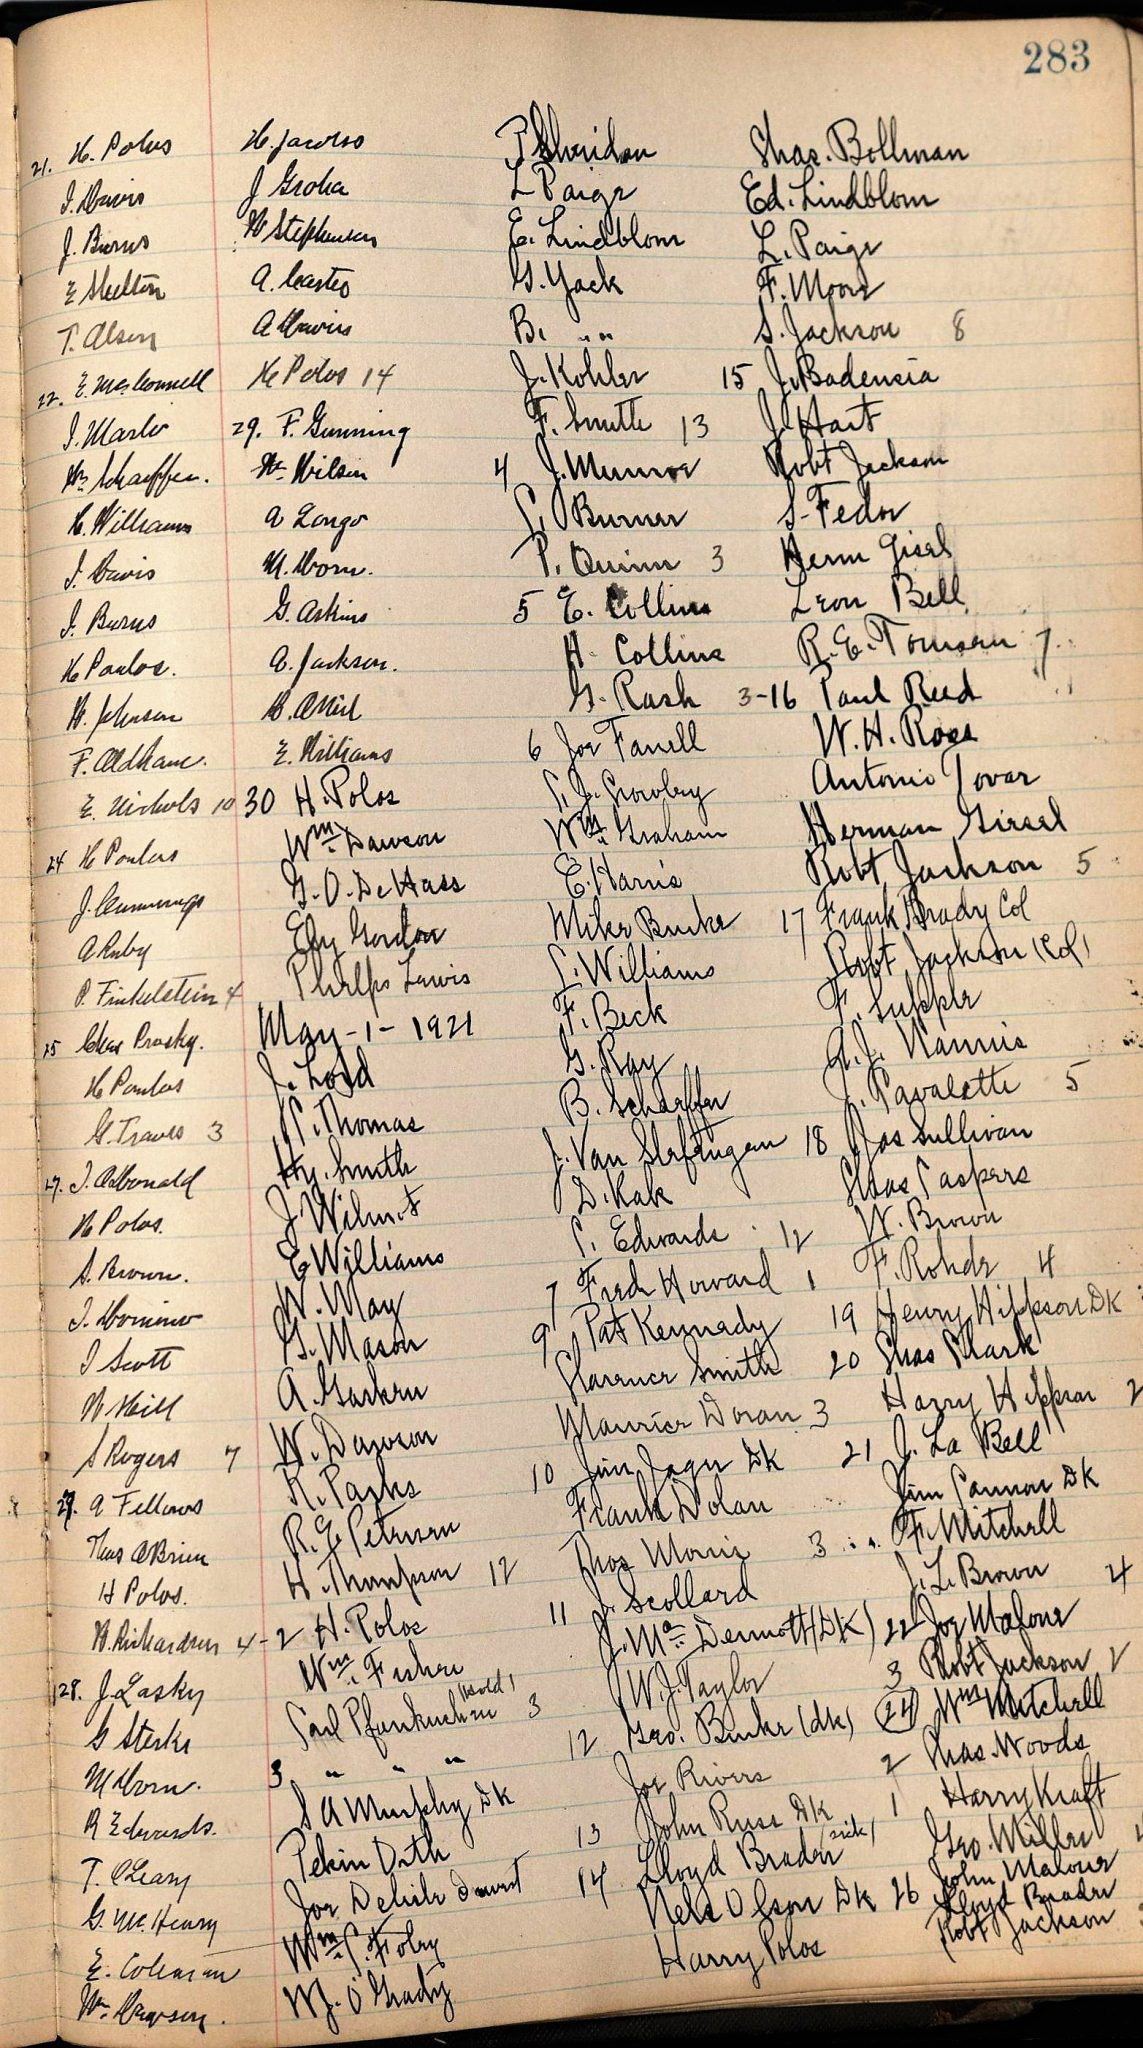 283
21. H. Polus
J. Davis
J. Burns
E Skelton
T. Olsen
22. E. McConnell
J. Marlo
Wm Schaeffer.
H. Williams
J. Davis
J. Burns
H Poulos.
W. Johnson
F. Oldham.
E. Nichols 10
24 H Poulas
J. Cummings
A Ruby
P. Finkelstein 4
25 Chas Prosky.
H Poulas
G. Traves 3
27. J. McDonald
H Polos.
S. Brown.
J. Domino
J Scott
W Hill
S Rogers 7
27. A Fellows
Thos OBrien
H Polos.
W. Richardson 4
28. J. Lasky
G Sterks
M Dorn.
R Edwards.
T. O'Leary
G. McHenry
E. Coleman
Wm. Dawson.
H. Jacobs
J Groha
W Stephenson
A. Castro
A Davis
H Polos 14
29. F. Gunning
Wm Wilson
A Longo
M. Dorn.
G. Askins
A. Jackson.
B. ONeil
E. Williams
30 H. Polos
Wm. Dawson
G. O. DeHass
Ely Gordon
Phelps Lewis
May-1-1921
J. Lord
P. Thomas
Hy. Smith
J Wilmot
E Williams
W. May
G. Mason
A. Garken
W. Dawson
R. Parks
R. E. Peterson
H. Thompson 12
-2 H. Polos
Wm. Fisher
Carl Pfankuchen (Hold) 3
3 " " "
S A Murphy DK
Pekin Dath
Joe Delisle
Wm. C. Foley
W J. O Grady
P Sheridan
L Paige
E. Lindblom
G. Yack
B. " "
J. Kohler
F. Smith 13
4 J. Munroe
C. Burner
P. Quinn 3
5 E. Collins
H. Collins
G. Rash
6 Joe Farrell
C. J. Crowley
Wm Graham
E. Harris
Mike Burke
C. Williams
F. Beck
G. Ray
B. Schaffer
J. Van
D. Kak
C. Edwards 12
7 Fred Howard 1
9 Pat Kennedy
Clarence Smith
Maurice Doran 3
10 Jim Jager DK
Frank Dolan
Thos Morris 3
11 J. Scollard
J. Mc. Dermott (DK)
W. J. Taylor
12 Geo. Burke (dk)
Joe Rivers
13 John Russ DK
14 Lloyd Braden (sick)
Nels Olson DK
Harry Polos
Chas. Bollman
Ed. Lindblom
L. Paige
F. Moore
S. Jackson 8
15 J. Badensia
J. Hart
Robt Jackson
S. Fedor
Herm Gisel
Leon Bell
R. E. Tomsen 7.
3-16 Paul Reed
W. H. Ross
Antonio Tovar
Herman Girsel
Robt Jackson 5
17 Frank Brady Col
Robt Jackson (Col)
F. Supple
A. J. Nannis
J. Pavalette 5
18 Jas Sullivan
Chas Caspers
W. Brown
F. Rohde 4
19 Henry Hippson DK
20 Chas Shark
Harry Hippson 2
21 J. La Bell
Jim Cannon DK
F. Mitchell
J. L. Brown 4
22 Joe Malone
3 Robt Jackson 2
(24) Wm Mitchell
2 Chas. Woods
1 Harry Kraft
Geo. Miller
26 John Malone
Lloyd Braden
Robt Jackson